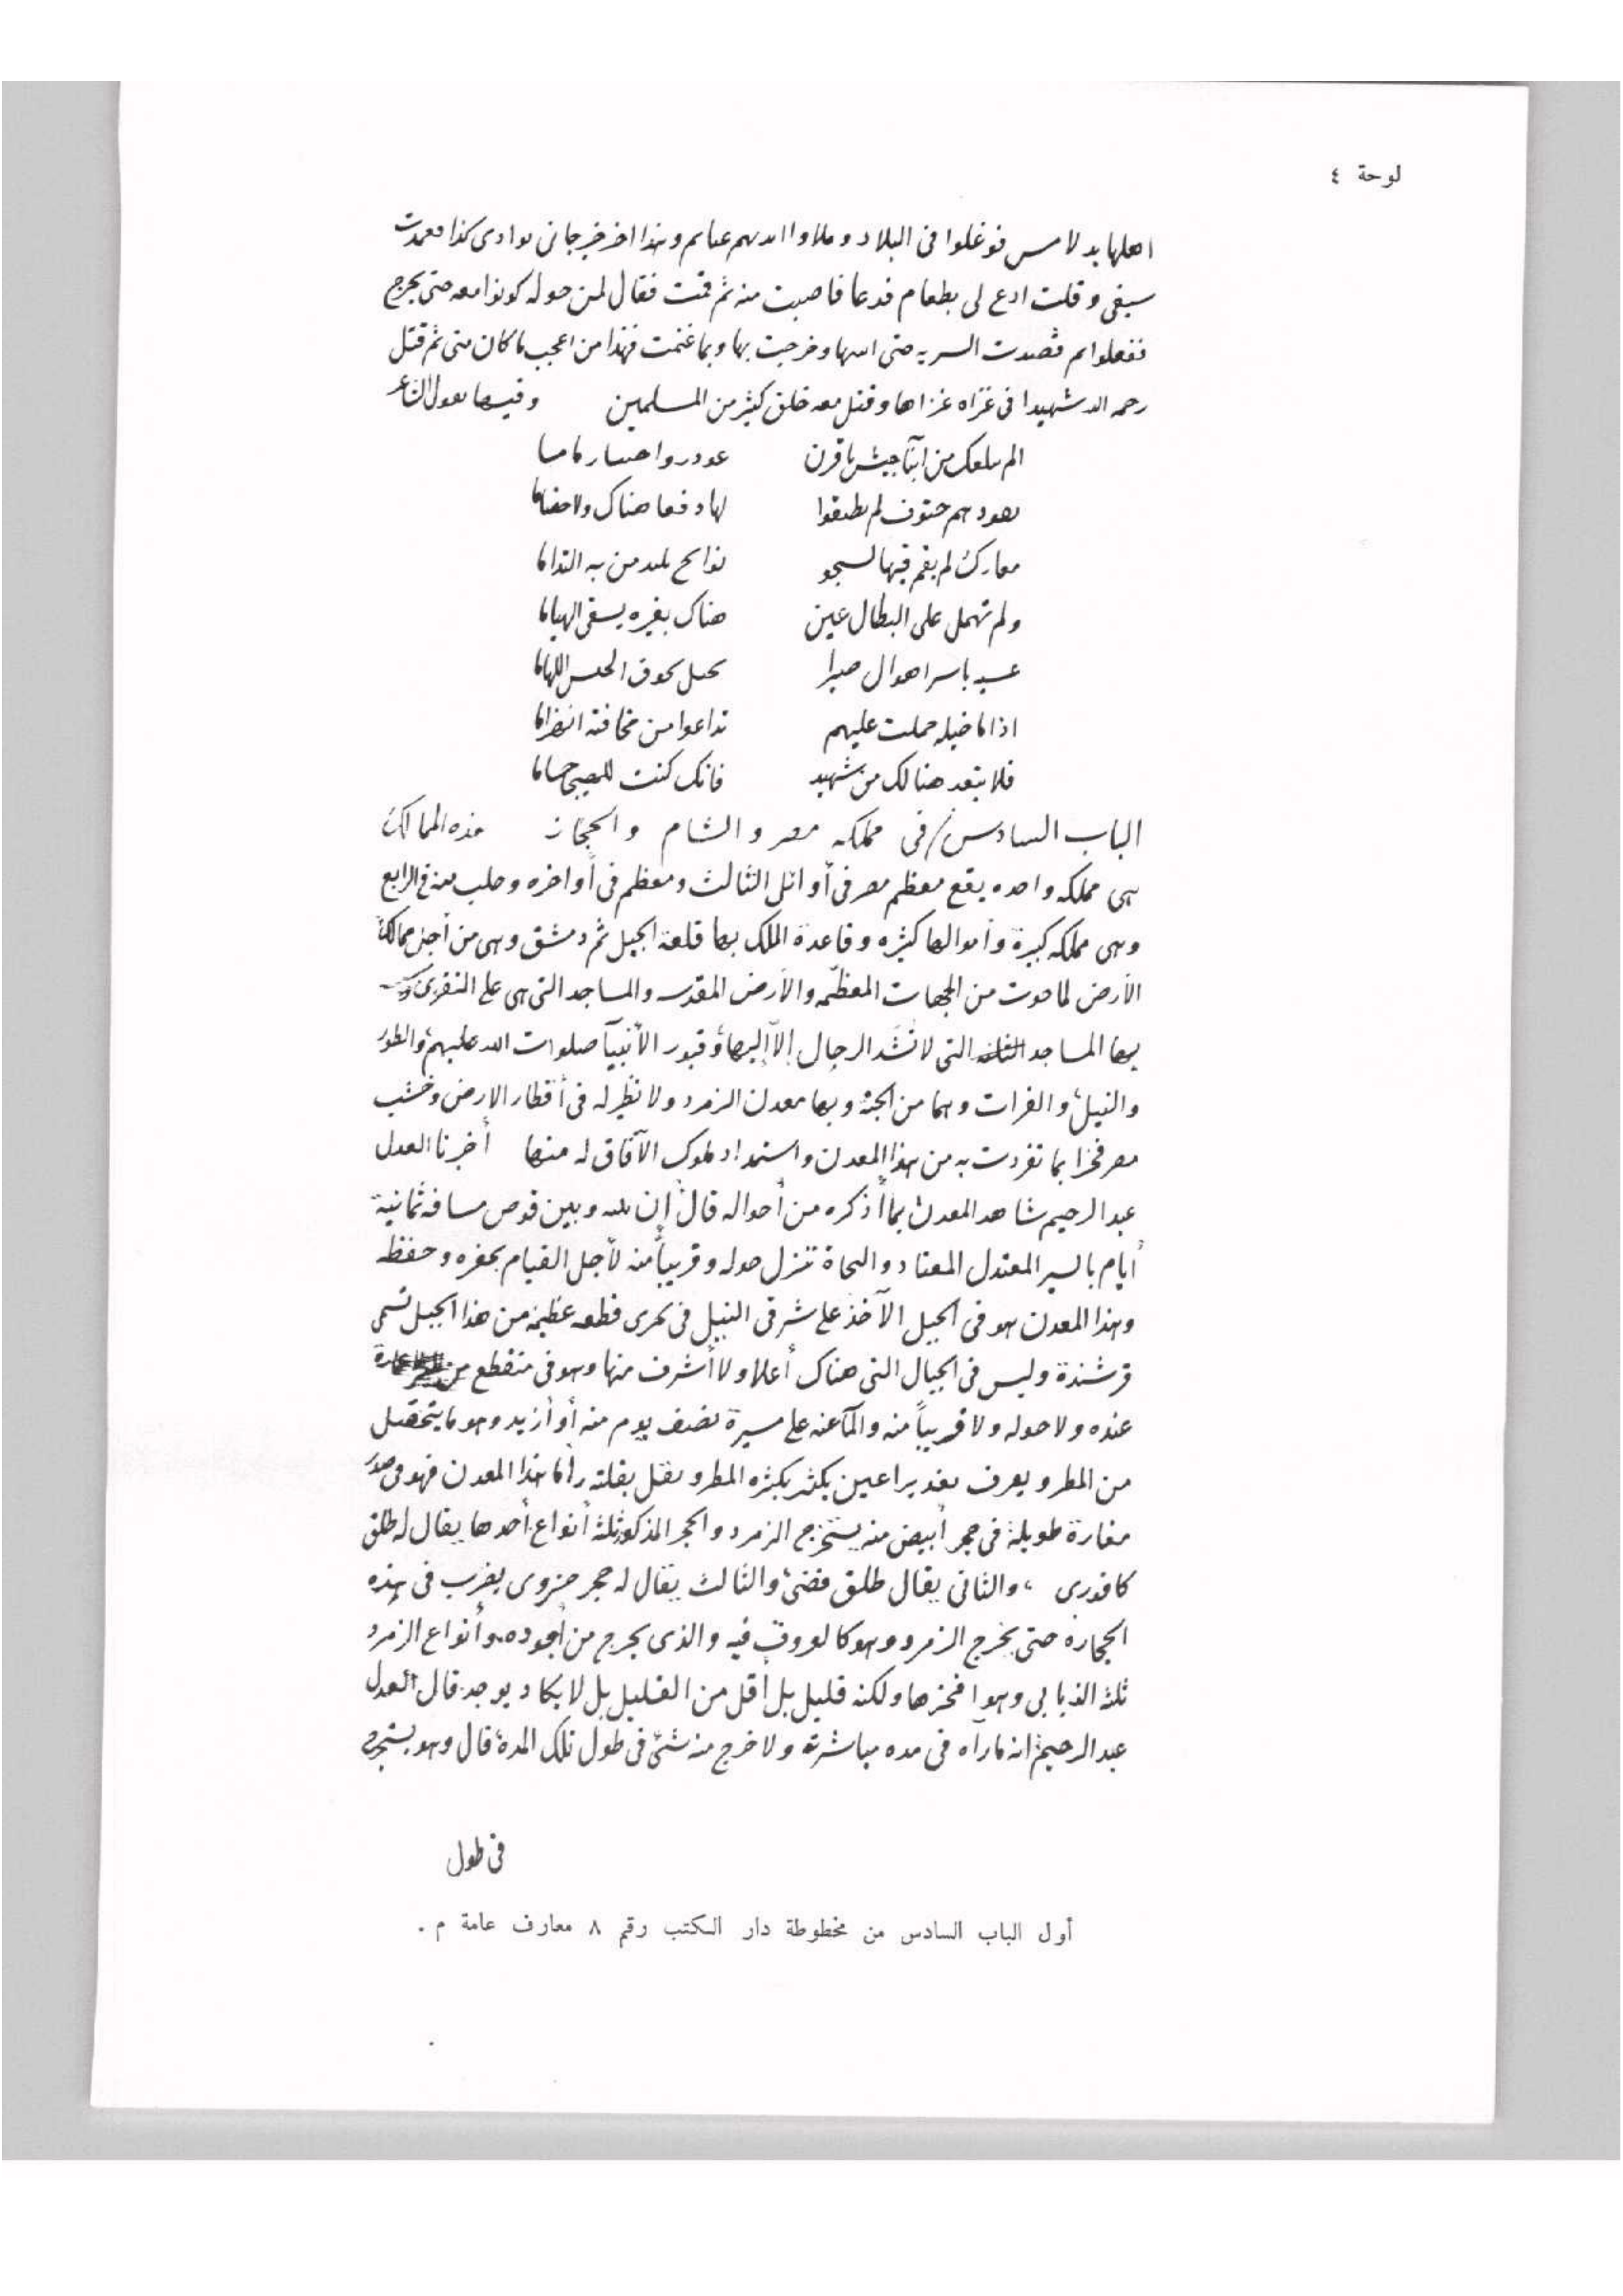 لوحة ٤
اهلها بد لا مس فوغلوا فى البلاد و ملاوا ا الديهم غنايم وهذا اخر خبر جانى بوادى كذا فعمدت
سيفى وقلت ادع لى بطعام فدعا فاصبت منه ثم قمت فقال لمن حوله كونوا معه حتى يخرج
ففعلوا ثم قصدت السريه حتى اتيتها وخرجت بها وبما غنمت فهذا من اعجب ما كان منى ثم قتل
رحمه الله شهيدا فى غزاه غزاها وقتل معه خلق كثير من المسلمين وفيها يقول الشاعر
الم يبلغك من ابنآ جيش باقرن غودروا
حتوف لم يطيقوا لها دفعا هناك ولا
معارك لم يقم فيها نوايح
ولم تهمل على البطال عين هناك بغيره يسقى الهياما
اهوال صبرا
اذا ما خيله حملت عليهم تداعوا من مخافته انهزاما
فلا تبعد هنالك من شهيد فانك كنت للهيجا حساما
الباب السادس / فى مملكه مصر و الشام و الحجاز هذه الممالك
هى مملكه واحده يقع معظم مصر فى أوائل الثالث ومعظم فى أواخره وحلب منه فى الرابع
وهى مملكه كبيرة وأموالها كثيره وقاعدة الملك بها قلعة الجبل ثم دمشق وهى من أجل ممالك
الأرض لما حوت من الجهات المعظّمه والأرض المقدسه والمساجد التى هى على التقوى
بها المساجد الثلثه التى لا تُشَد الرحال إلّا إليها وقبور الأنبيآ صلوات الله عليهم والطور
والنيل و الفرات وهما من الجنة وبها معدن الزمرد ولا نظير له فى أقطار الارض وحسب
مصر فخرا بما تفردت به من هذا المعدن واستمداد ملوك الآفاق له منها أخبرنا العدل
عبد الرحيم شاهد المعدن بما أذكره من أحواله قال إن بينه وبين قوص مسافة ثمانية
أيام بالسير المعتدل المعتاد و البجاة تنزل حوله وقريباً منه لأجل القيام بحفره وحفظه
وهذا المعدن هو فى الجبل الآخذ على شرقى النيل فى بحرى قطعه عظيمه من هذا الجبل تسمى
قرشندة وليس فى الجبال التى هناك أعلا ولا أشرف منها وهو فى منقطع من عمارة
عنده ولا حوله ولا قريباً منه والمآ عنه على مسيرة نصف يوم منه أو أزيد وهو ما يتحصل
من المطر و يعرف بغدير اعين يكثر بكثره المطر و يقل بقلته وأما هذا المعدن فهو فى صدر
مغارة طويلة فى حجر أبيض منه يستخرج الزمرد والحجر المذكور ثلثة أنواع أحدها يقال له طلق
كافورى ، والثانى يقال طلق فضى والثالث يقال له حجر جزوى يضرب فى هذه
الحجاره حتى يخرج الزمرد وهو كالعروق فيه والذى يخرج من أجوده وأنواع الزمرد
ثلثة الذبابى وهو افخرها ولكنه قليل بل أقل من القليل بل لا يكاد يوجد قال العدل
عبد الرحيم انه ما رآه فى مده مباشرته ولا خرج منه شئ فى طول تلك المدة قال وهو يستخرج
فى طول
أول الباب السادس من مخطوطة دار الكتب رقم ٨ معارف عامة م .